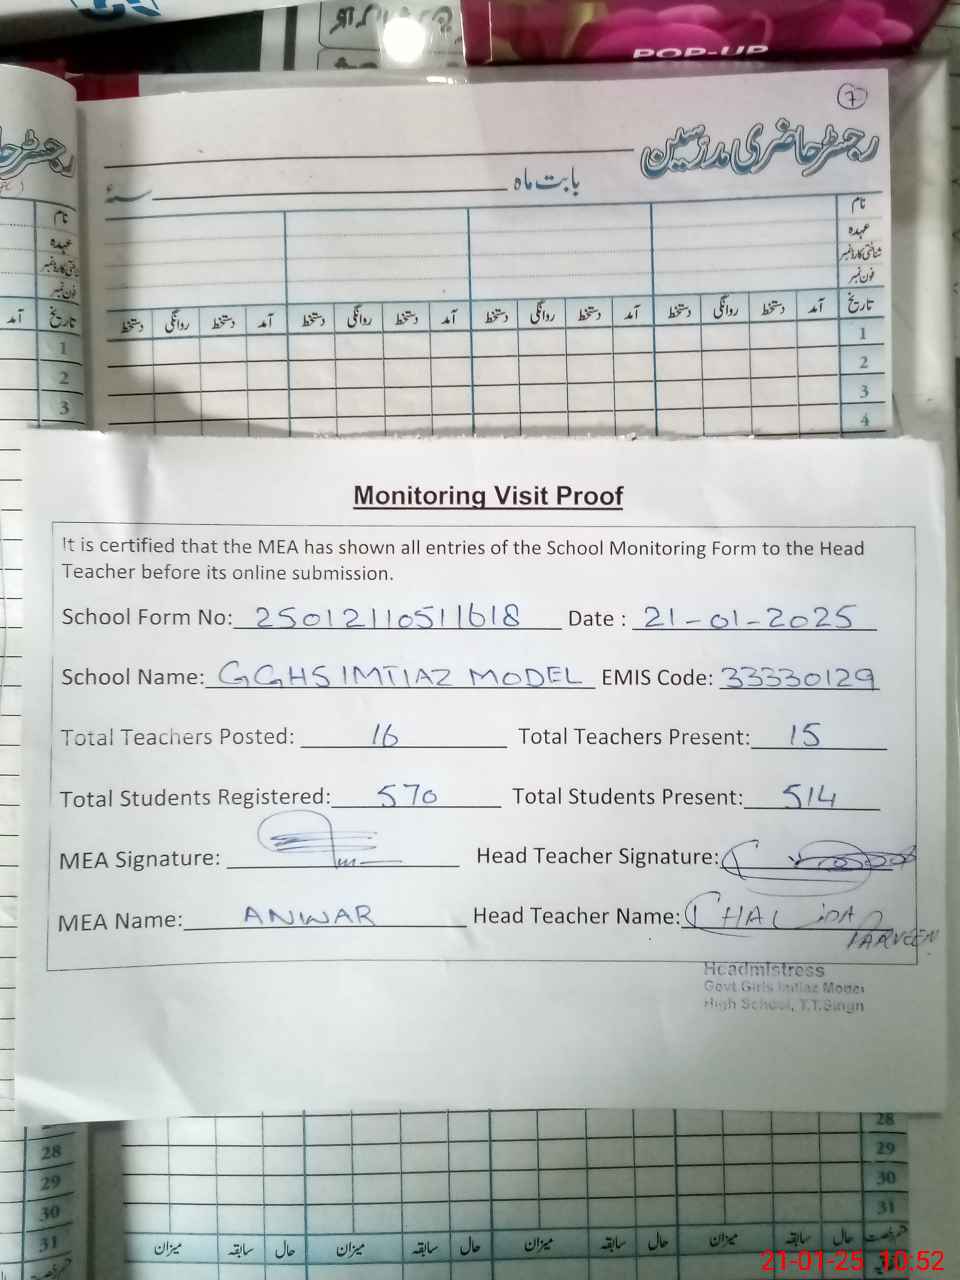 POP-UP
7
رجسٹر حاضری مدرسین
بابت ماہ سنہ
نام
عہدہ
شناختی کارڈ نمبر
فون نمبر
تاریخ آمد دستخط روانگی دستخط آمد دستخط روانگی دستخط آمد دستخط روانگی دستخط آمد دستخط روانگی دستخط
1
2
3
4
نام
عہدہ
فون نمبر
تاریخ آمد
1
2
3
Monitoring Visit Proof
It is certified that the MEA has shown all entries of the School Monitoring Form to the Head
Teacher before its online submission.
School Form No: 25012110511618 Date : 21-01-2025
School Name: GGHS IMTIAZ MODEL EMIS Code: 33330129
Total Teachers Posted: 16 Total Teachers Present: 15
Total Students Registered: 570 Total Students Present: 514
MEA Signature: Head Teacher Signature:
MEA Name: ANWAR Head Teacher Name: KHALIDA
PARVEEN
Headmistress
Govt Girls Imtiaz Model
High School, T.T.Singh
28
29
30
31
28
29
30
31
حال سابقہ میزان حال سابقہ میزان حال سابقہ میزان حال سابقہ میزان
21-01-25 10:52